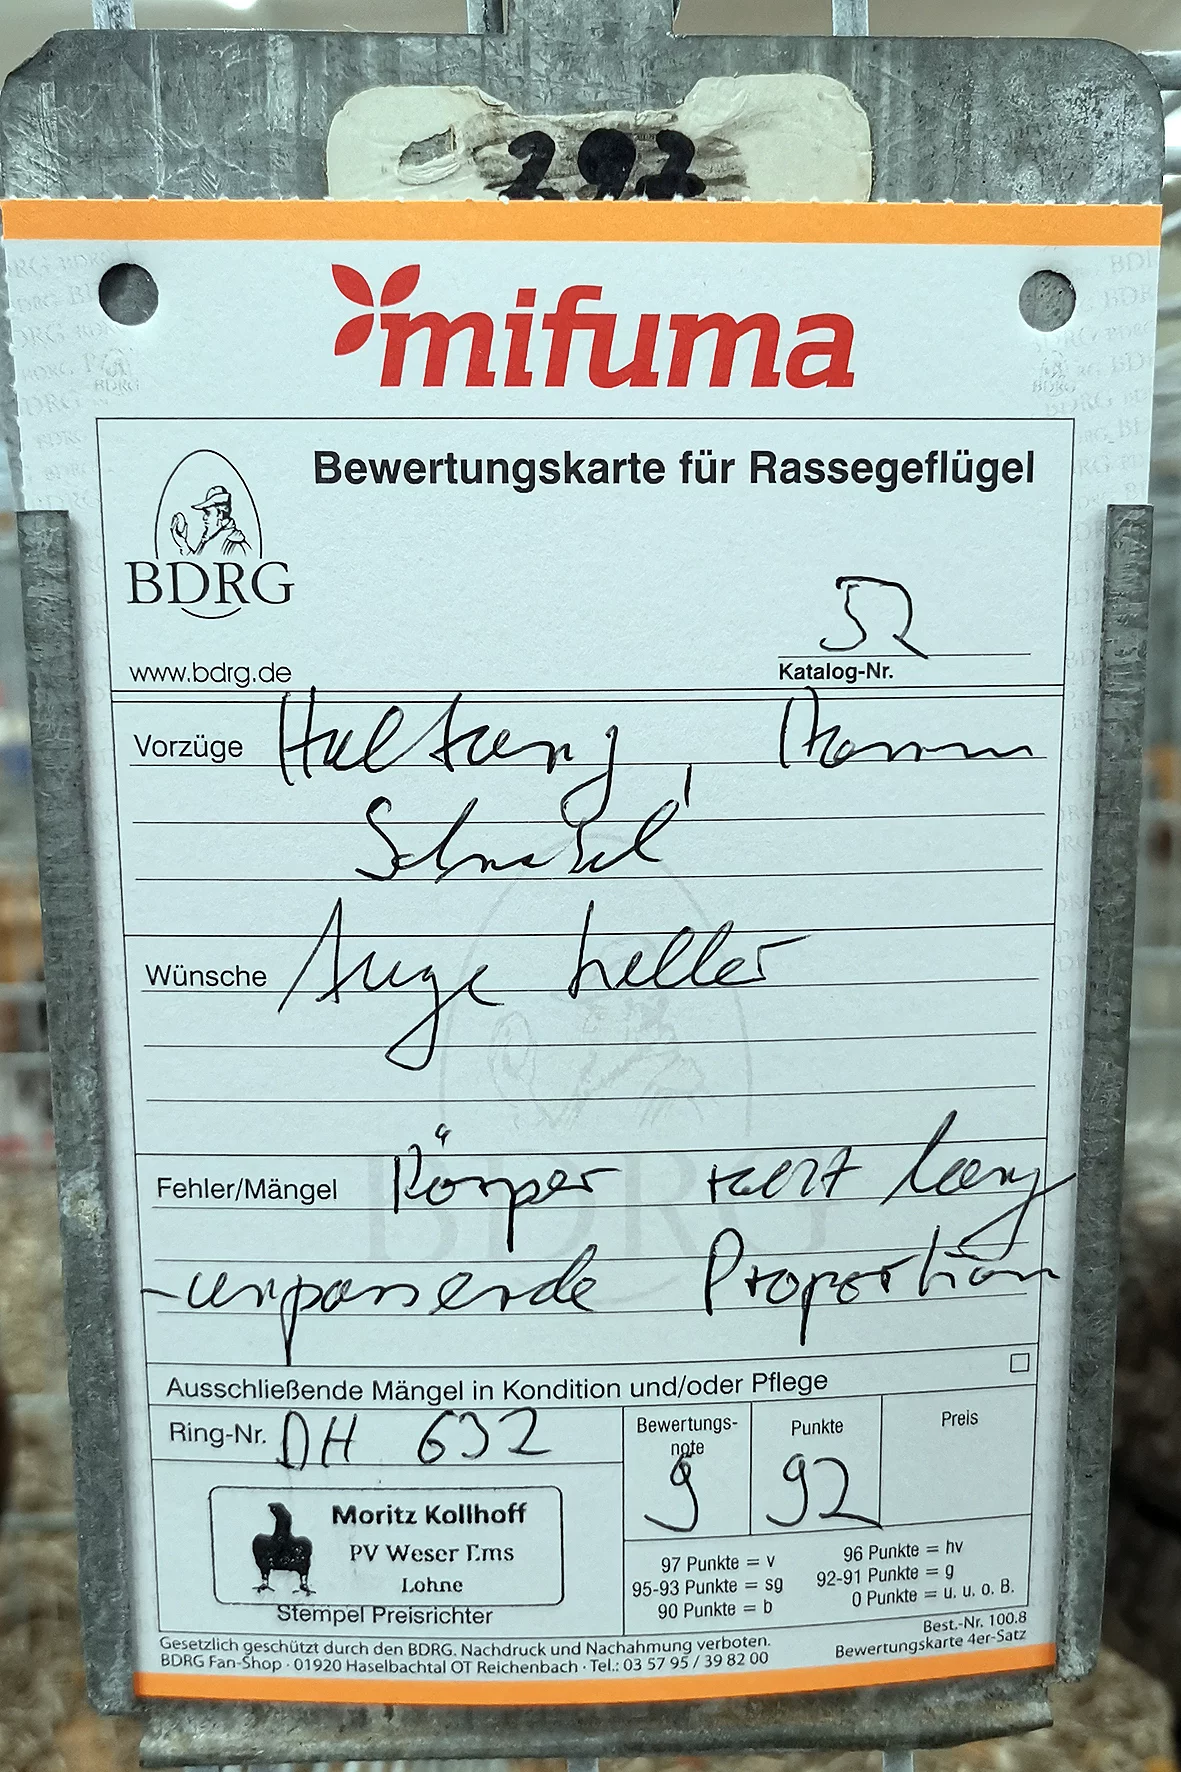 292
mifuma
Bewertungskarte für Rassegeflügel
BDRG
www.bdrg.de
52
Katalog-Nr.
Vorzüge Haltung,
Schnabel
Wünsche Auge heller
Fehler/Mängel Körper sehr lang
- unpassende Proportion
Ausschließende Mängel in Kondition und/oder Pflege
Ring-Nr. DH 632
Bewertungs-
note
g
Punkte
92
Preis
Moritz Kollhoff
PV Weser Ems
Lohne
Stempel Preisrichter
97 Punkte = v
96 Punkte = hv
95-93 Punkte = sg
92-91 Punkte = g
90 Punkte = b
0 Punkte = u. u. o. B.
Gesetzlich geschützt durch den BDRG. Nachdruck und Nachahmung verboten.
BDRG Fan-Shop · 01920 Haselbachtal OT Reichenbach · Tel.: 03 57 95 / 39 82 00
Best.-Nr. 100.8
Bewertungskarte 4er-Satz